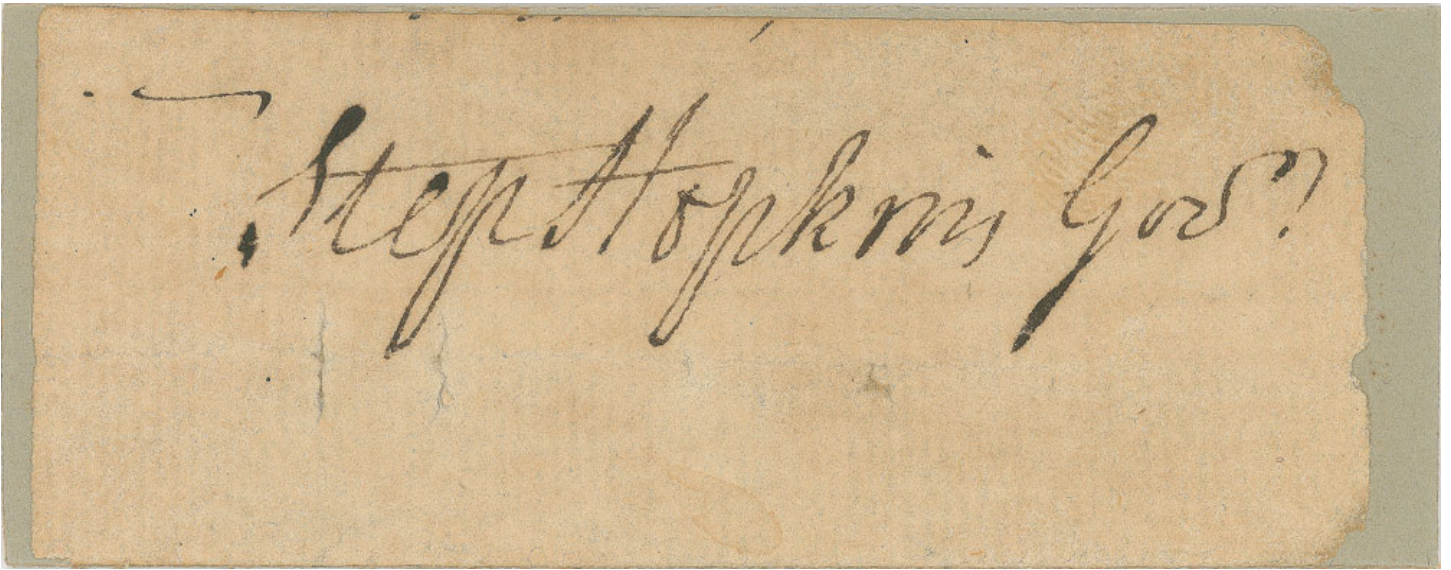 Step Hopkins Govr